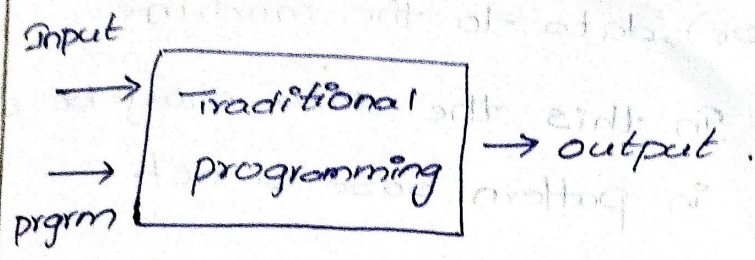 Input
Traditional
programming
→ output.
prgrm